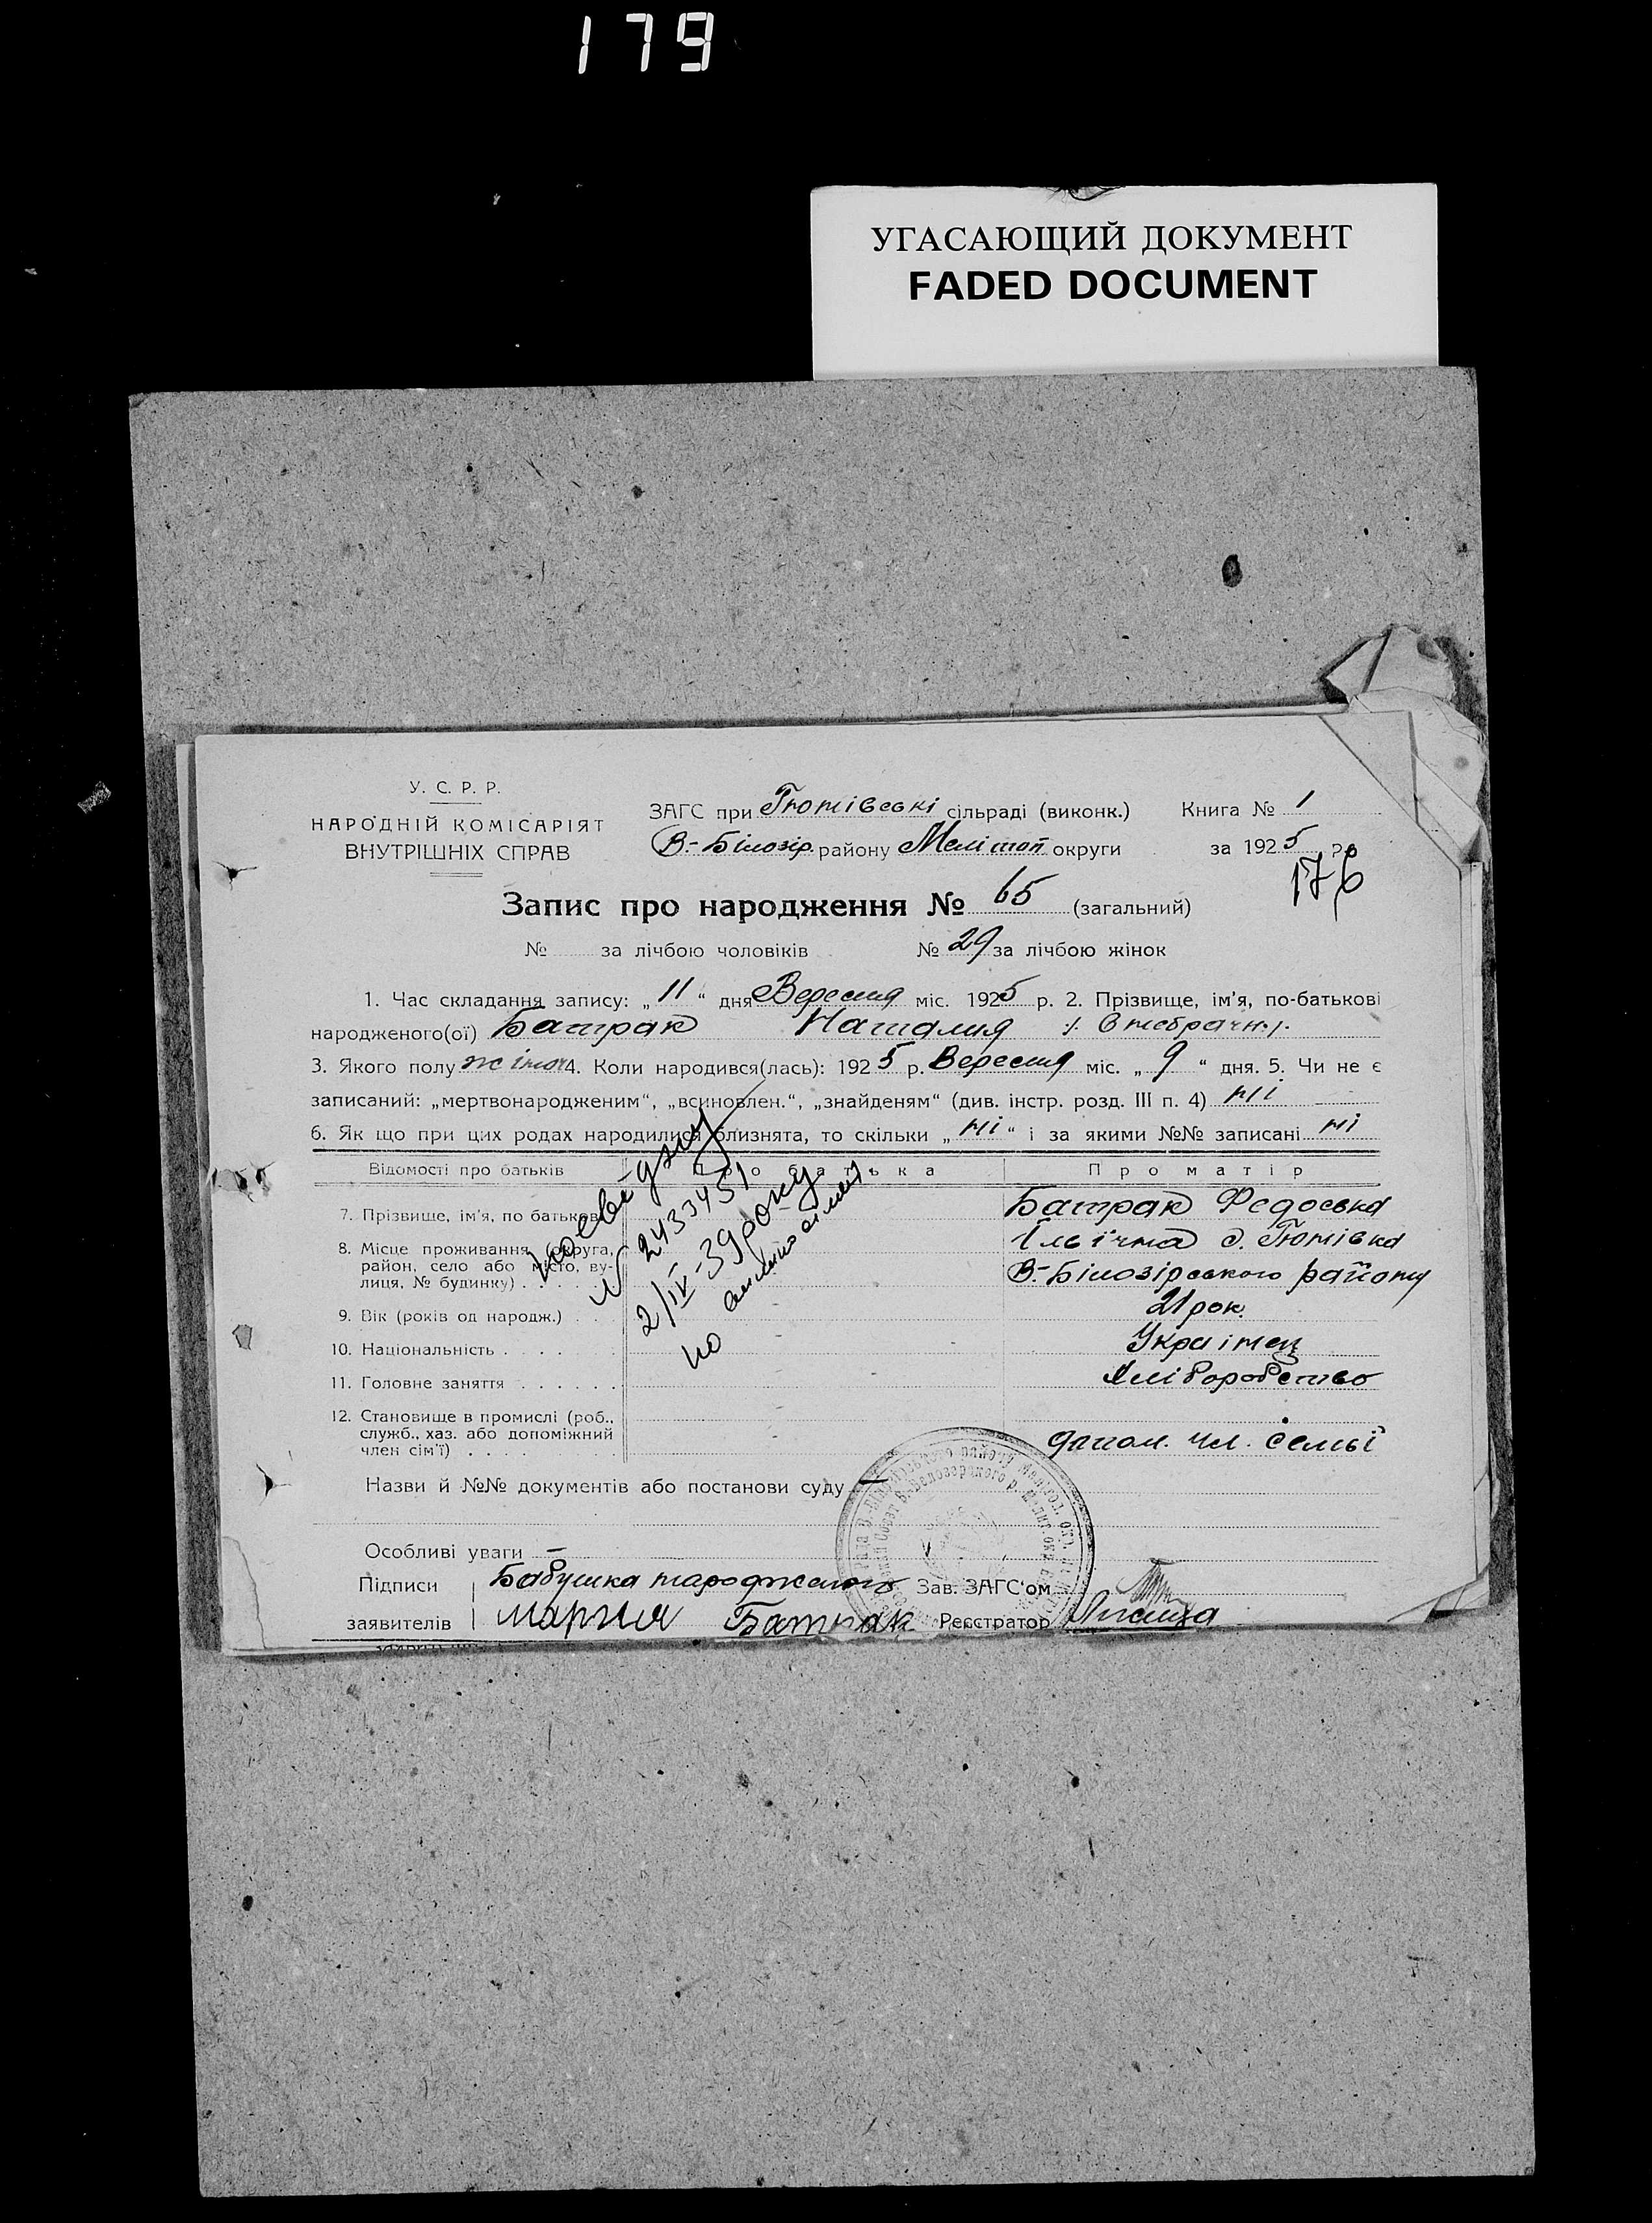 179
УГАСАЮЩИЙ ДОКУМЕНТ
FADED DOCUMENT
У. С. Р. Р.
НАРОДНІЙ КОМІСАРІЯТ
ВНУТРІШНІХ СПРАВ
ЗАГС при Тютівські сільраді (виконк.)
В.-Білозір. району Меліtoп. округи
Книга № 1
за 1925 р.
176
Запис про народження № 65 (загальний)
№ за лічбою чоловіків № 29 за лічбою жінок
1. Час складання запису: „11“ дня Вересня міс. 1925 р. 2. Прізвище, ім'я, по-батькові
народженого(ої) Батрак Наталия
3. Якого полу жіноч 4. Коли народився(лась): 1925 р. Вересня міс. „9“ дня. 5. Чи не є
записаний: „мертвонародженим“, „всиновлен.“, „знайденям“ (див. інстр. розд. III п. 4) ні
6. Як що при цих родах народилися близнята, то скільки „ні“ і за якими №№ записані ні
Відомості про батьків Про батька Про матір
7. Прізвище, ім'я, по батькові Батрак Федоська
8. Місце проживання (округа, район, село або місто, вулиця, № будинку) Ільїчна с. Тютівка
В.-Білозірського району
9. Вік (років од народж.) 21 рок.
10. Національність Украінец
11. Головне заняття Хліборобство
12. Становище в промислі (роб., служб., хаз. або допоміжний член сім'ї) допом. чл. семьї
№ 2433451
2/IV-39 року
по
Назви й №№ документів або постанови суду —
Особливі уваги —
Підписи заявителів Бабушка народженого
Мария Батрак
Зав. ЗАГС'ом
Реєстратор